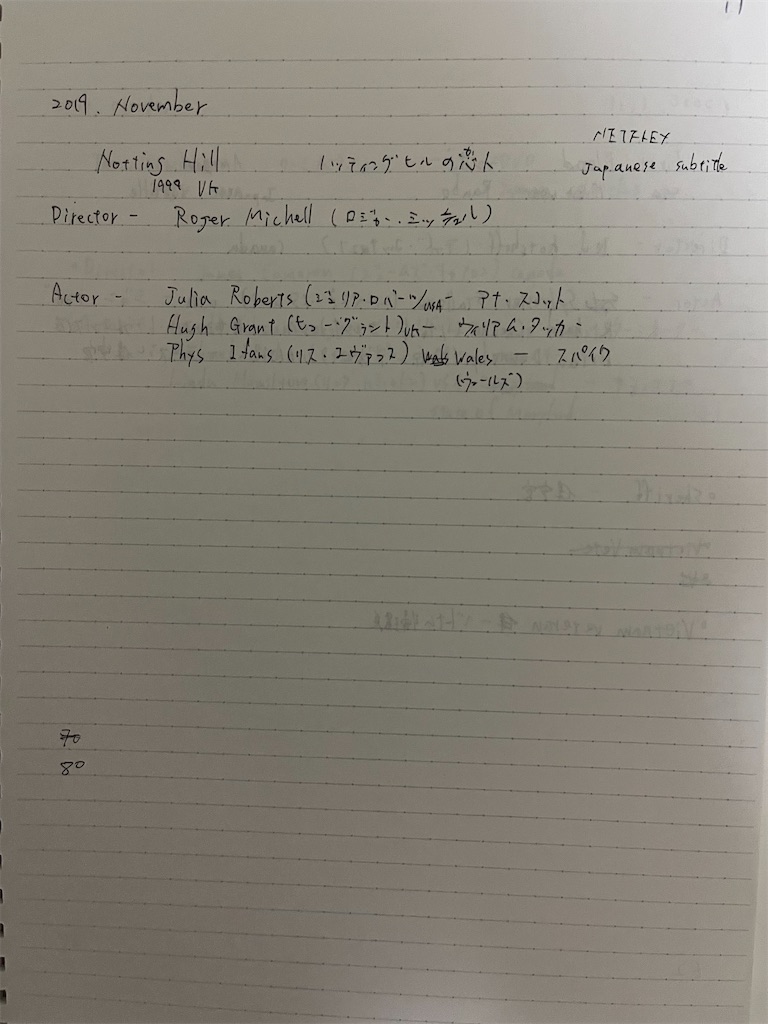 11
2019. November
NETFLEX
Notting Hill ノッティングヒルの恋人 Japanese subtitle
1999 UK
Director - Roger Michell (ロジャー・ミッシェル)
Actor - Julia Roberts (ジュリア・ロバーツ) USA - アナ・スコット
Hugh Grant (ヒュー・グラント) UK - ウィリアム・タッカー
Phys Ifans (リス・エヴァンス) Wales - スパイク
(ウェールズ)
70
80